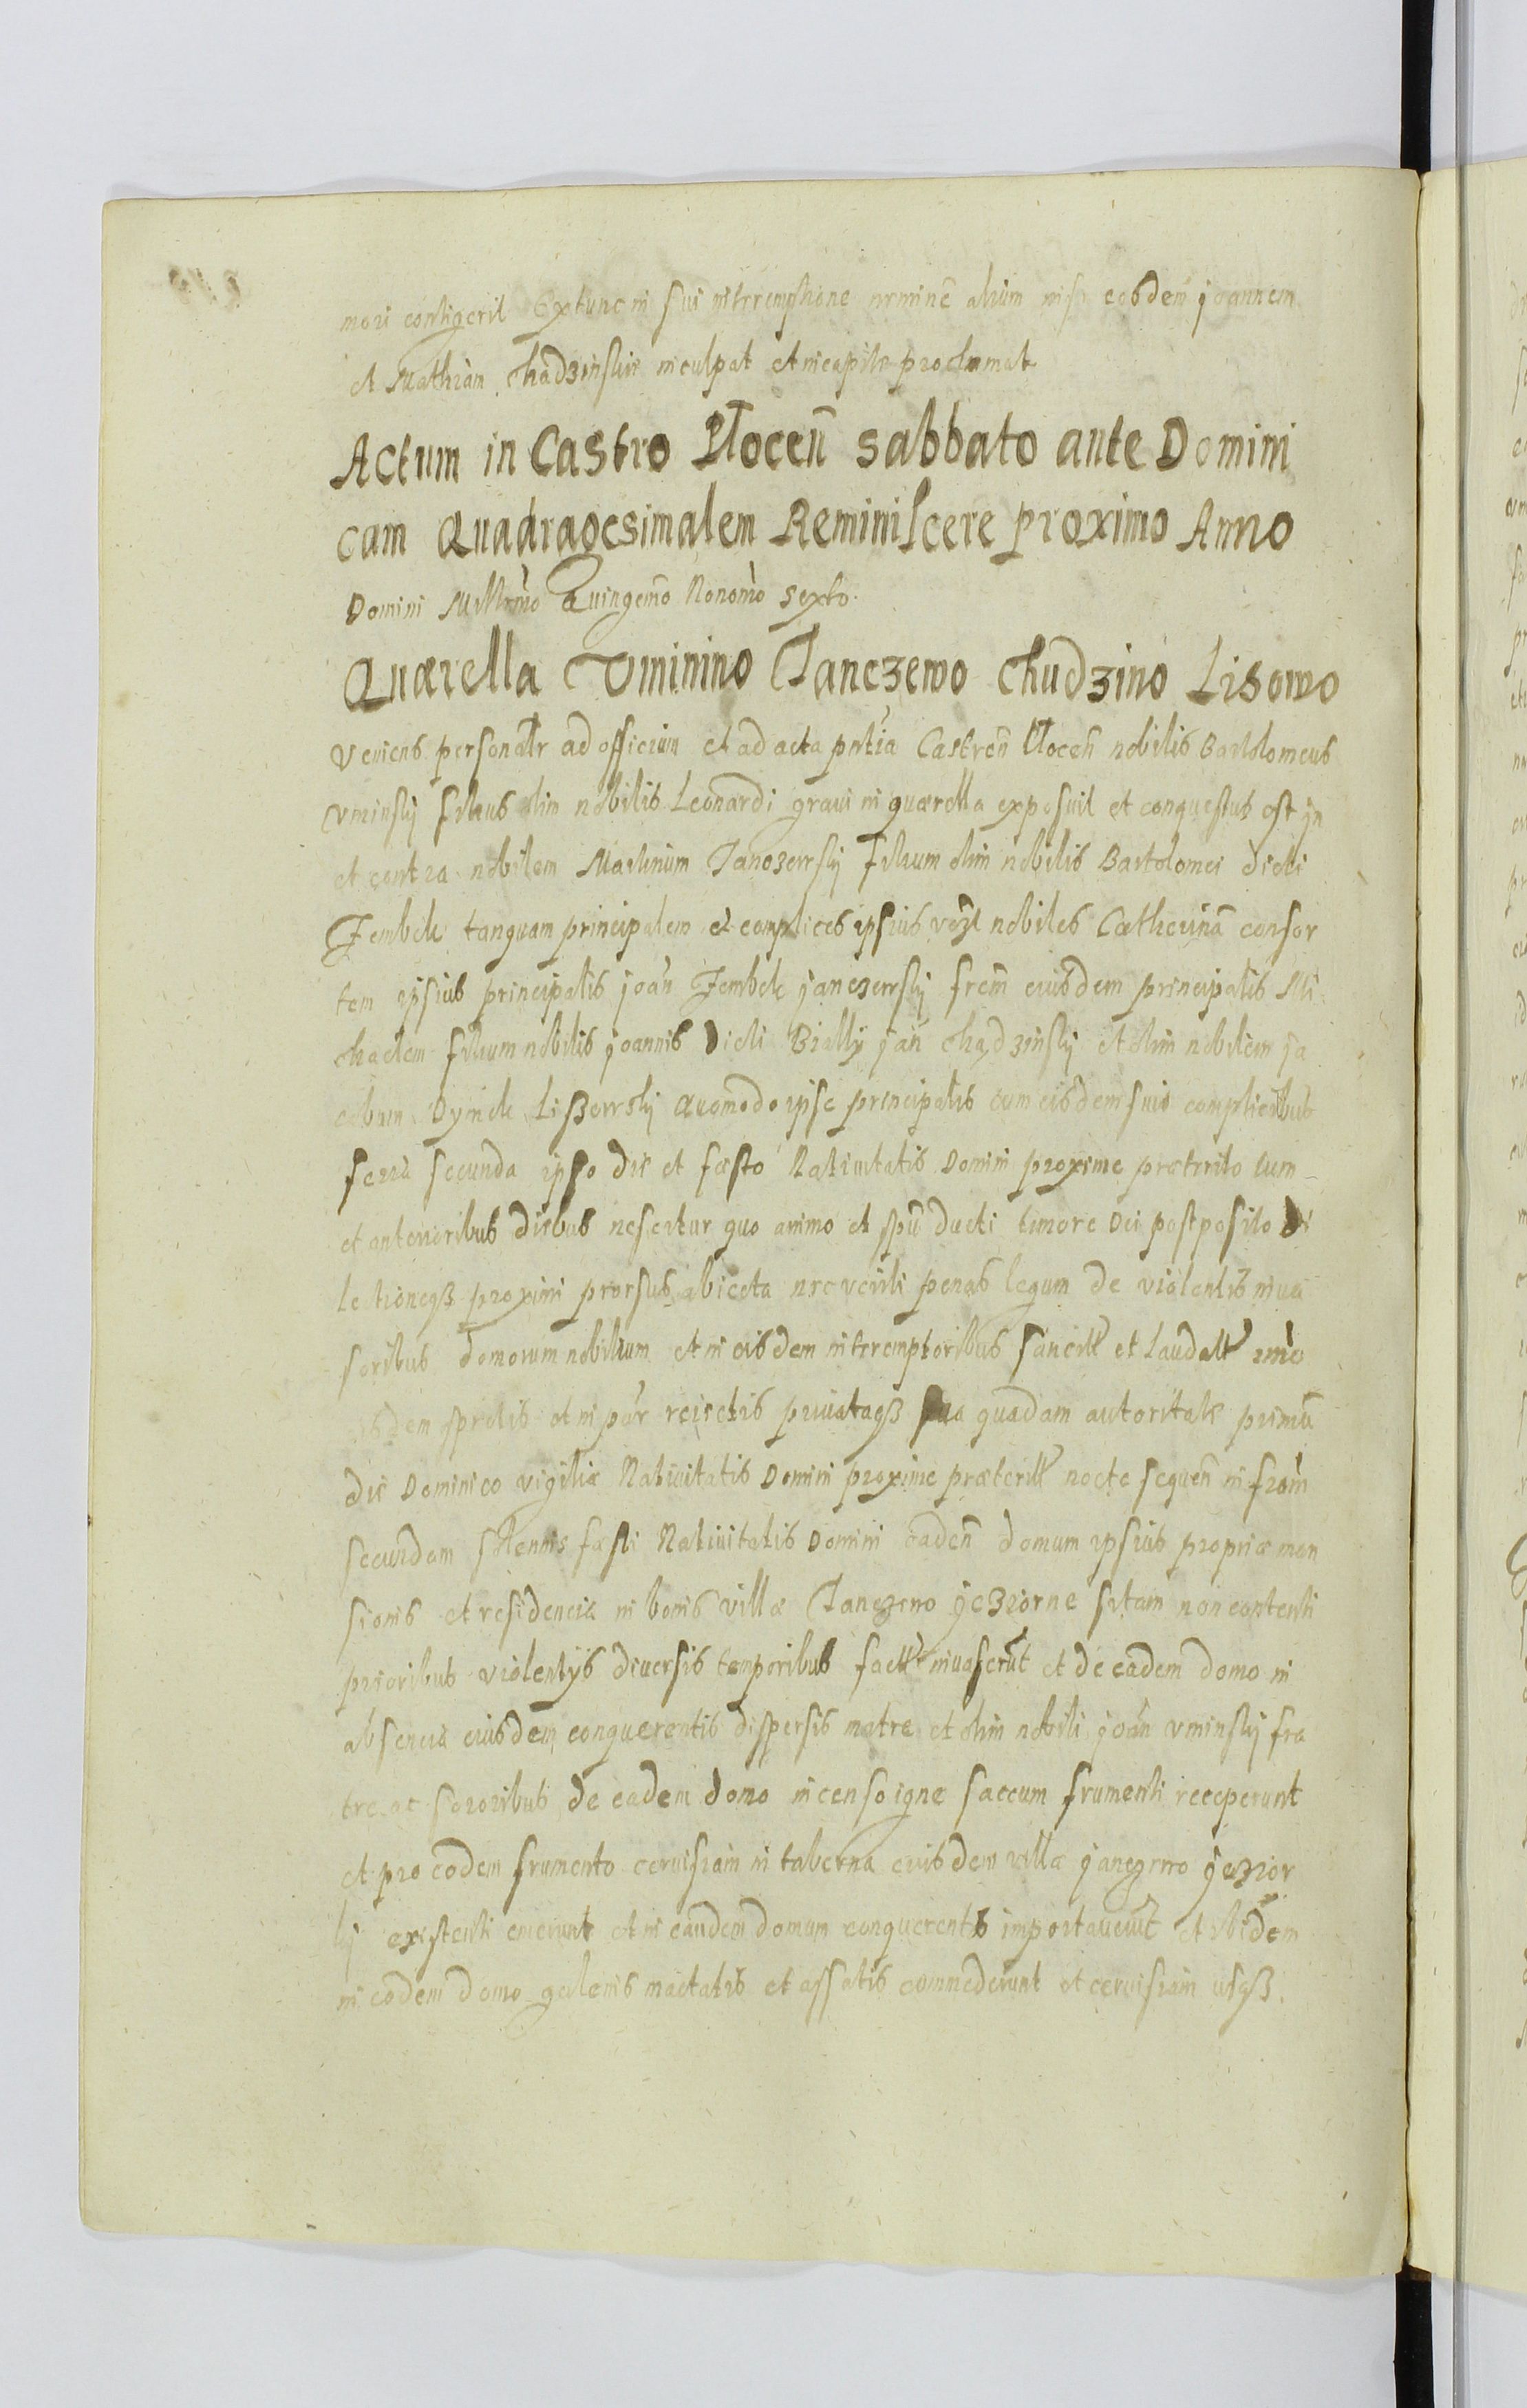 mori contigerit Extunc in sui interemptione neminē alium nisi eosdem joannem
et Mathiam Chądzinskie inculpat et in capite proclamat
Actum in Castro Płoceñ sabbato ante Domini
cam Quadragesimalem Reminiscere proximo Anno
Domini Millm̃o Quingem̃o Nonom̃o sexto.
Quærella Uminino Janczewo Chudzino Lisowo
Veniens personalr̃ ad officium et ad acta pñtia Castreñ Płoceñ nobilis Bartolomeus
Uminsky filius olim nobilis Leonardi graui in quærella exposuit et conquestus est in
et contra nobilem Martinum Janczewsky filium olim nobilis Bartolomei dicti
Zembek tanquam principalem et complices ipsius nobiles Catherinã consor
tem ipsius principalis joañ Zembek janczewsky frem̃ eiusdem principalis Mi
chaelem filium nobilis joannis dicti Bially jañ Chądzinsky et olim nobilem ja
cobum Dynek Lissewsky Quomodo ipse principalis cum eisdem suis complicibus
feria secunda ipso die et fæsto Natiuitatis Domini proxime præterito tum
et anterioribus diebus nescitur quo animo et spũ ducti timore Dei postposito Di
lectioneqз proximi prorsus abiecta nec veriti penas legum de violentis inua
soribus domorum nobilium et in eisdem interemptoribus sancitt et laudatt imo
eisdem spretis et in par reiectis priuataqз sua quadam autoritate primũ
die Dominico vigiliæ Natiuitatis Domini proxime præteritt nocte sequeñ in
secundam solennis fæsti Natiuitatis Domini eadeñ domum ipsius propriæ man
sionis et residencia in bonis villæ Janczewo jeziorne sitam non contenti
prioribus violentijs diuersis temporibus factt inuaserũt et de eadem domo in
absencia eiusdem conquerentis dispersis matre et olim nobili joañ Uminsky fra
tre ac sororibus de eadem domo incenso igne saccum frumenti receperunt
et pro eodem frumento ceruisiam in taberna eiusdem villæ janczewo jezior
ky existenti emerunt et in eandem domum conquerentis importauerũt et ibidem
in eodem domo galenis mactatis et assatis commederunt et ceruisiam